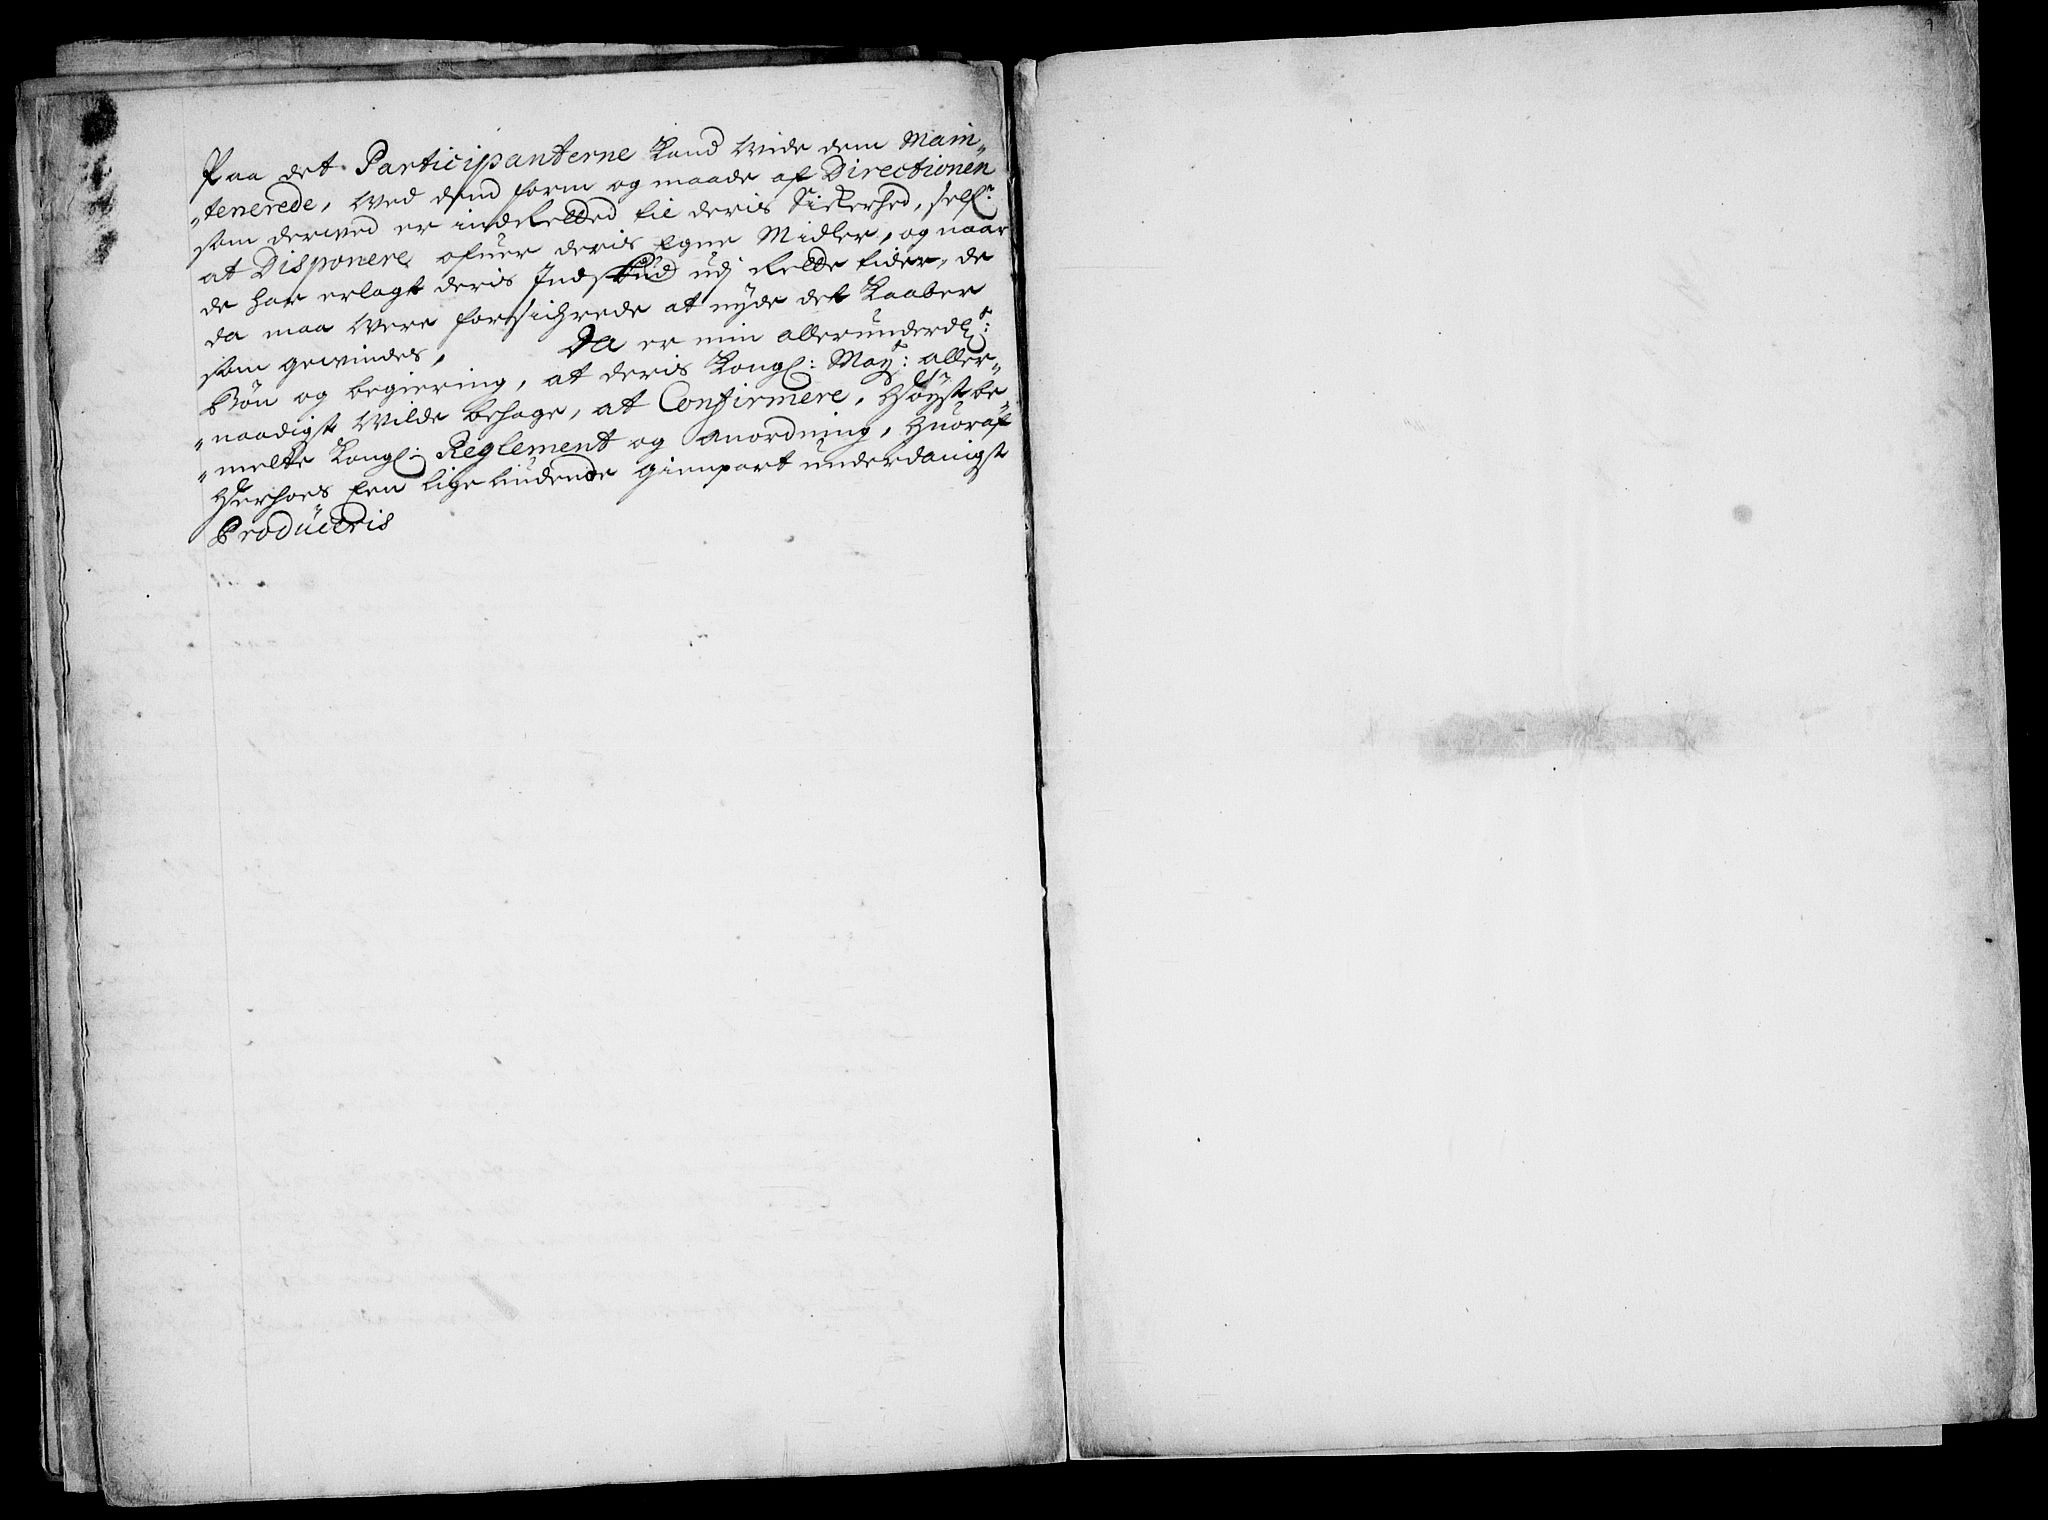 Paa det Participanterne Kand Wide dem Main„
„tenerede, Wed dend form og maade af Directionen
som derved er indstelled til deris Sickerhed, self:
at Disponere ofuer deris Egne Midler, og naar
de har erlagt deris Indskud udj stelde tider, de
da maa Were forsichrede at nyde det Kaaber
som gewindes, Da er min allerunderd:
Bön og begiering, at deris Kongl: May: aller„
„naadigst Wilde behage, at Confirmere, Höystbe„
„melte Kongl: Reglement og anordning, Huoraf
Herhoes Een ligelüdende gienpart underdanigst
Produceris